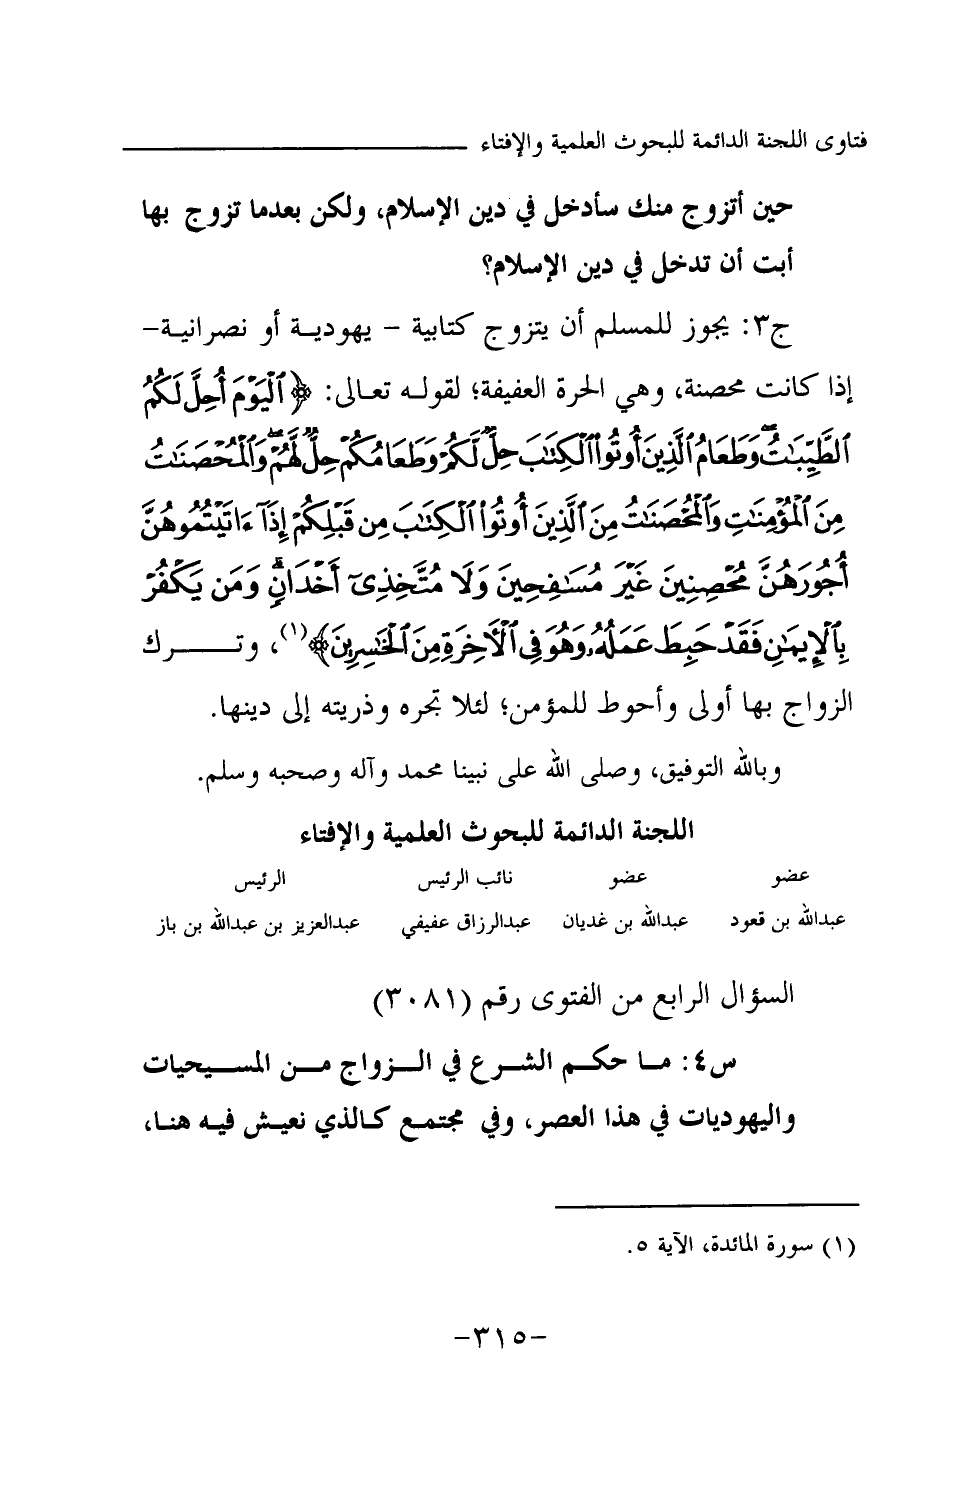 فتاوى اللجنة الدائمة للبحوث العلمية والإفتاء
حين أتزوج منك سأدخل في دين الإسلام، ولكن بعدما تزوج بها
أبت أن تدخل في دين الإسلام؟
ج٣: يجوز للمسلم أن يتزوج كتابية - يهودية أو نصرانية-
إذا كانت محصنة، وهي الحرة العفيفة؛ لقوله تعالى: ﴿ ٱلۡيَوۡمَ أُحِلَّ لَكُمُ
ٱلطَّيِّبَٰتُۖ وَطَعَامُ ٱلَّذِينَ أُوتُواْ ٱلۡكِتَٰبَ حِلّٞ لَّكُمۡ وَطَعَامُكُمۡ حِلّٞ لَّهُمۡۖ وَٱلۡمُحۡصَنَٰتُ
مِنَ ٱلۡمُؤۡمِنَٰتِ وَٱلۡمُحۡصَنَٰتُ مِنَ ٱلَّذِينَ أُوتُواْ ٱلۡكِتَٰبَ مِن قَبۡلِكُمۡ إِذَآ ءَاتَيۡتُمُوهُنَّ
أُجُورَهُنَّ مُحۡصِنِينَ غَيۡرَ مُسَٰفِحِينَ وَلَا مُتَّخِذِيٓ أَخۡدَانٖۗ وَمَن يَكۡفُرۡ
بِٱلۡإِيمَٰنِ فَقَدۡ حَبِطَ عَمَلُهُۥ وَهُوَ فِي ٱلۡأٓخِرَةِ مِنَ ٱلۡخَٰسِرِينَ﴾(١)، وتـــرك
الزواج بها أولى وأحوط للمؤمن؛ لئلا تجره وذريته إلى دينها.
وبالله التوفيق، وصلى الله على نبينا محمد وآله وصحبه وسلم.
اللجنة الدائمة للبحوث العلمية والإفتاء
عضو عضو نائب الرئيس الرئيس
عبدالله بن قعود عبدالله بن غديان عبدالرزاق عفيفي عبدالعزيز بن عبدالله بن باز
السؤال الرابع من الفتوى رقم (٣٠٨١)
س٤: ما حكم الشرع في الزواج من المسيحيات
واليهوديات في هذا العصر، وفي مجتمع كالذي نعيش فيه هنا،
(١) سورة المائدة، الآية ٥.
-٣١٥-